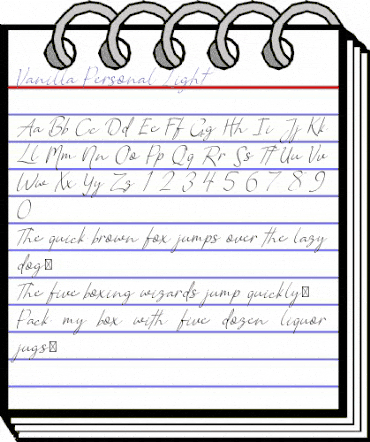 Vanilla Personal Light
Aa Bb Cc Dd Ee Ff Gg Hh Ii Jj Kk
Ll Mm Nn Oo Pp Qq Rr Ss Tt Uu Vv
Ww Xx Yy Zz 1 2 3 4 5 6 7 8 9
0
The quick brown fox jumps over the lazy
dog
The five boxing wizards jump quickly
Pack my box with five dozen liquor
jugs